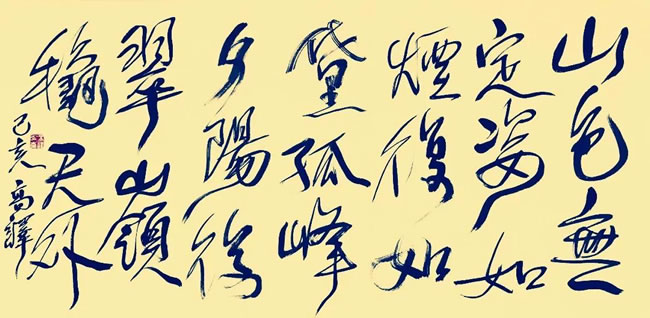 山色無
定姿如
煙復如
黛孤峰
夕陽後
翠嶺
穐天外
己亥高譯